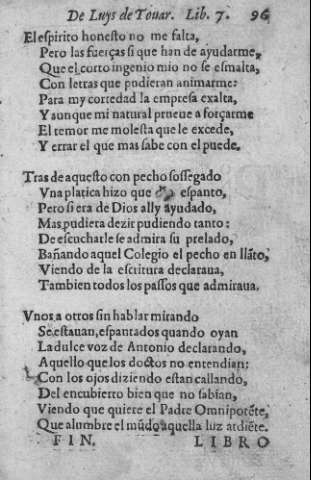 De Luys de Touar. Lib. 7. 96
El espirito honesto no me falta,
Pero las fuerças si que han de ayudarme,
Que el corto ingenio mio no se esmalta,
Con letras que pudieran animarme:
Para my cortedad la empresa exalta,
Y aunque mi natural prueue a forçarme
El temor me molesta que le excede,
Y errar el que mas sabe con el puede.
Tras de aquesto con pecho sossegado
Vna platica hizo que espanto,
Pero si era de Dios ally ayudado,
Mas pudiera dezir pudiendo tanto:
De escucharle se admira su prelado,
Bañando aquel Colegio el pecho en llãto,
Viendo de la escritura declaraua,
Tambien todos los passos que admiraua.
Vnos a otros sin hablar mirando
Se estauan, espantados quando oyan
La dulce voz de Antonio declarando,
Aquello que los doctos no entendian:
Con los ojos diziendo estan callando,
Del encubierto bien que no sabian,
Viendo que quiere el Padre Omnipotẽte,
Que alumbre el mũdo aquella luz ardiẽte.
FIN. LIBRO